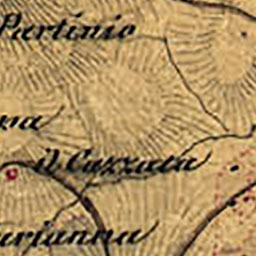 Partinio
na
il Cuzzaca
arianna